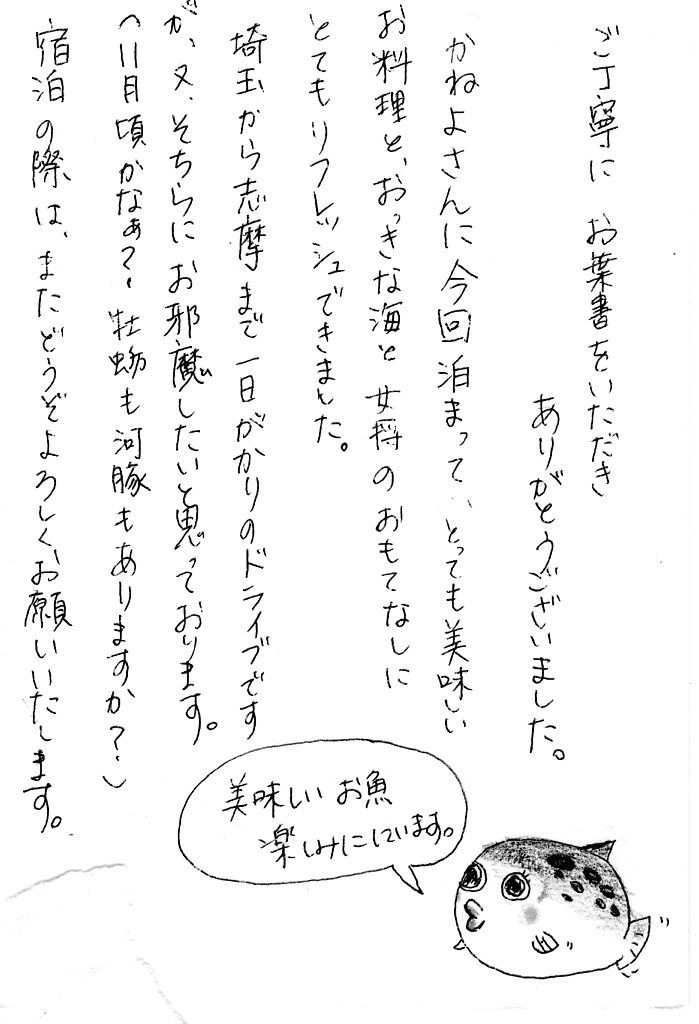 ご丁寧に お葉書をいただき
ありがとうございました。
かねよさんに今回泊まって、とっても美味しい
お料理と、おっきな海と女将のおもてなしに
とてもリフレッシュできました。
埼玉から志摩まで一日がかりのドライブです
が、又、そちらにお邪魔したいと思っております。
(11月頃かなぁ?、牡蛎も河豚もありますか?)
宿泊の際は、またどうぞよろしくお願いいたします。
美味しい お魚
楽しみにしています。